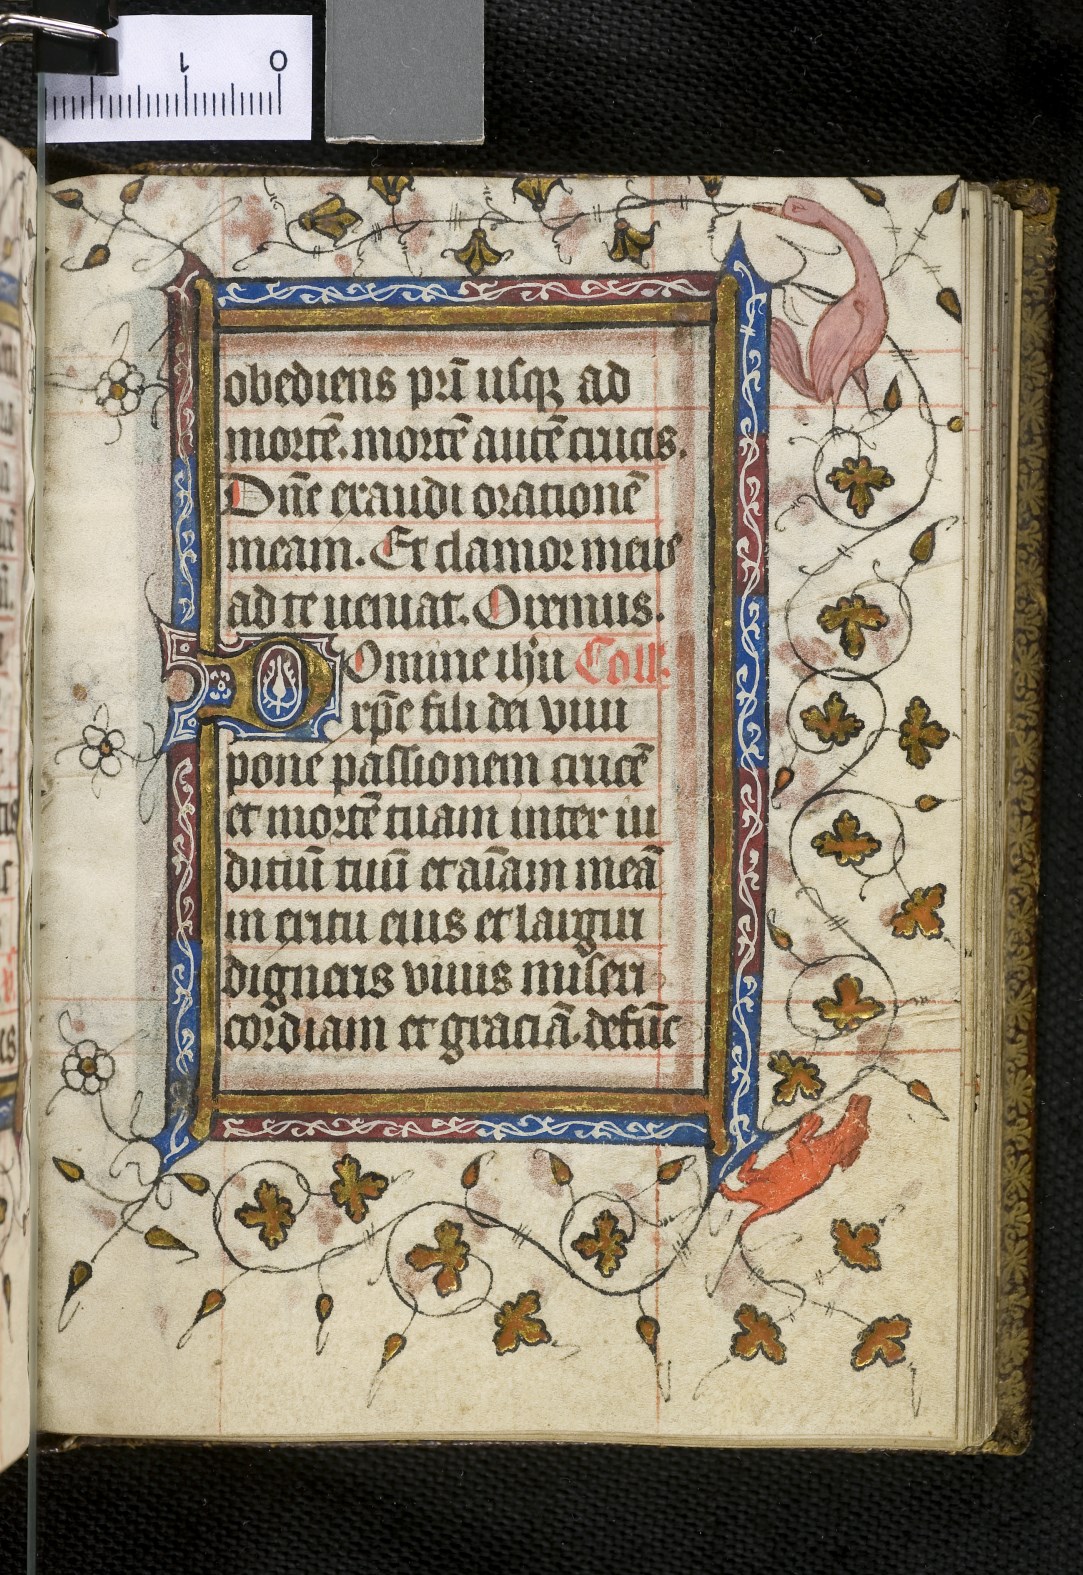 1 0
obediens pr̄i usqꝫ ad
mortē. mortē autē crucis.
Dn̄e exaudi orationē
meam. Et clamor meus
ad te ueniat. Oremus.
Domine ihū Coll.
xp̄e fili dei viui
pone passionem crucē
et mortē tuam inter iu
diciū tuū et aīam meā
in exitu eius et largiri
digneris viuis miseri
cordiam et graciā. defūc